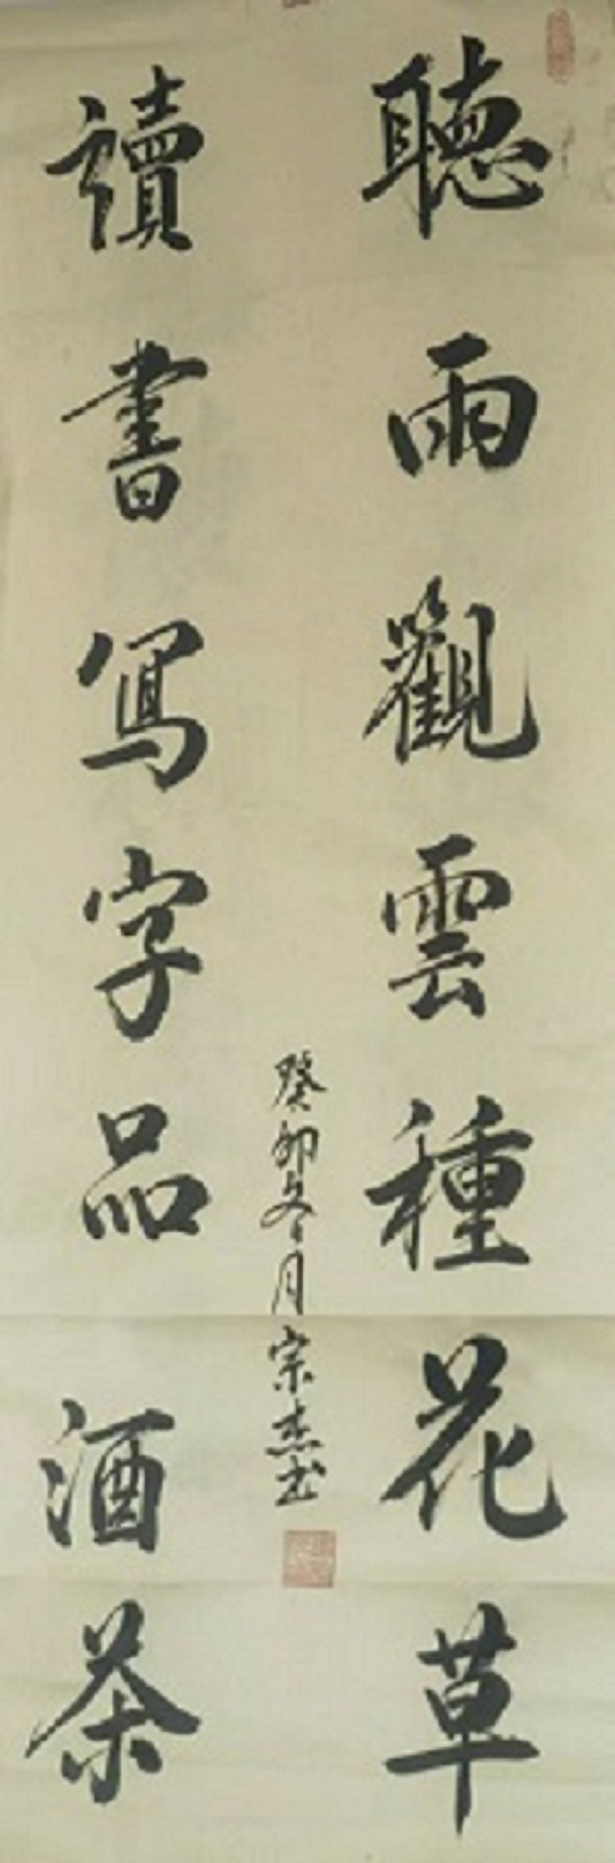 聽雨觀雲種花草
讀書寫字品酒茶
癸卯冬月宗杰书